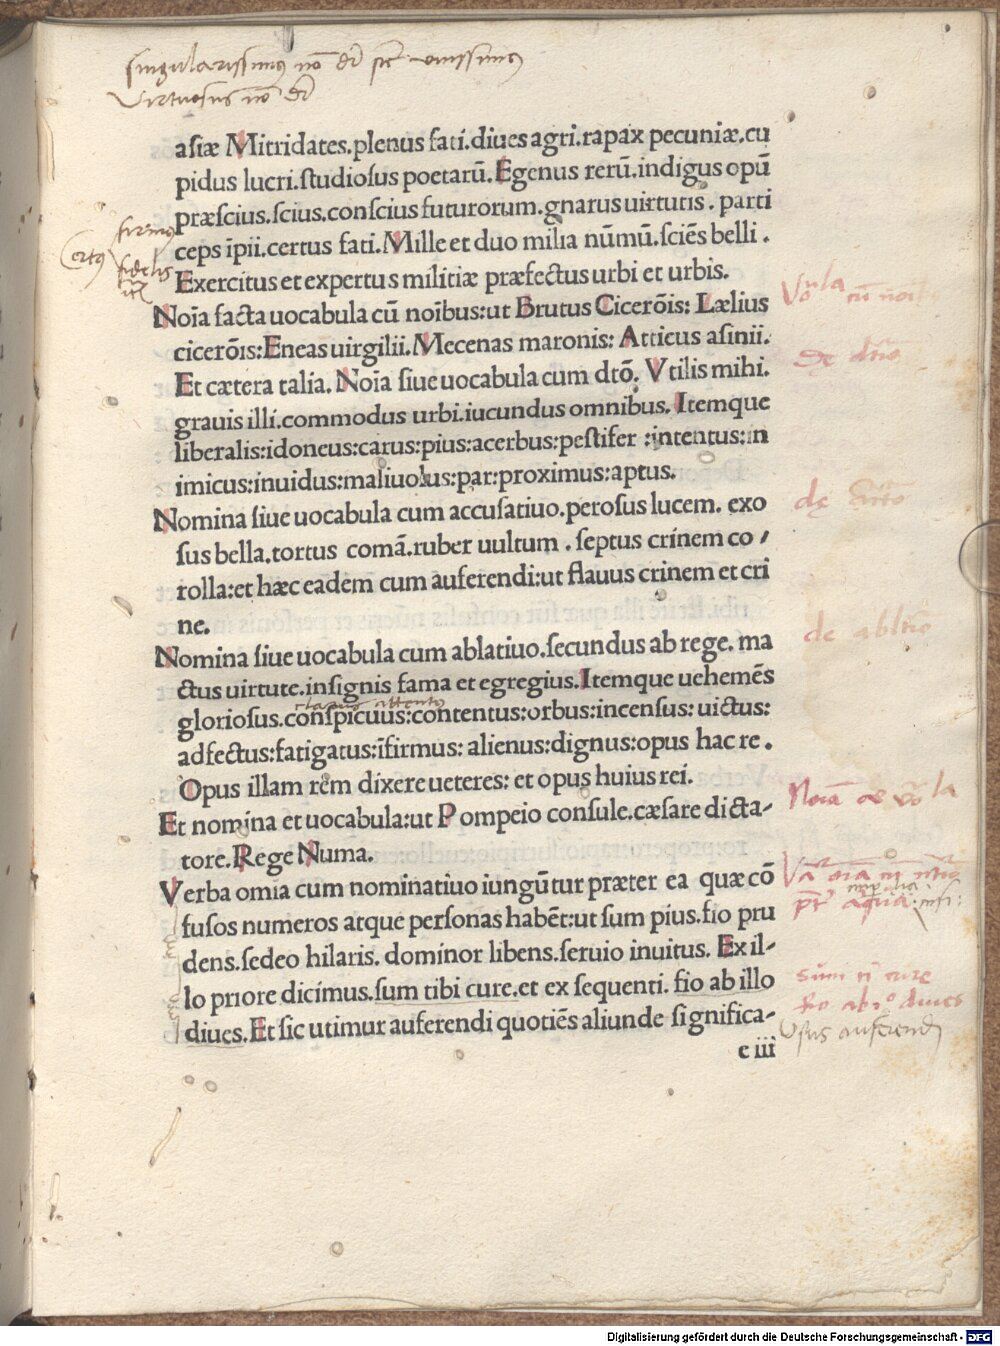 singularissimus nō dr̄
Virtuosus nō dr̄
asiæ Mitridates.plenus fati.diues agri.rapax pecuniæ.cu
pidus lucri.studiosus poetarū.Egenus rerū.indigus opū
præscius.scius.conscius futurorum.gnarus uirtutis.parti
firmus
ceps īpii.certus fati.Mille et duo milia nūmū.sciēs belli.
Certus
fidelis
Exercitus et expertus militiæ præfectus urbi et urbis.
Noīa facta uocabula cū noībus:ut Brutus Cicerōis: Lælius
cicerōis:Eneas uirgilii.Mecenas maronis: Atticus asinii.
Et cætera talia. Noīa siue uocabula cum dtō. Vtilis mihi.
grauis illi.commodus urbi.iucundus omnibus. Itemque
liberalis:idoneus:carus:pius:acerbus:pestifer :intentus:in
imicus:inuidus:maliuolus:par:proximus:aptus.
Nomina siue uocabula cum accusatiuo.perosus lucem. exo
sus bella.tortus comā.ruber uultum . septus crinem co /
rolla:et hæc eadem cum auferendi:ut flauus crinem et cri
ne.
Nomina siue uocabula cum ablatiuo.secundus ab rege. ma
ctus uirtute.insignis fama et egregius.Itemque uehemēs
gloriosus.conspicuus:contentus:orbus:incensus: uictus:
adfectus:fatigatus:īfirmus: alienus:dignus:opus hac re .
Opus illam rem dixere ueteres: et opus huius rei.
Et nomina et uocabula:ut Pompeio consule.cæsare dicta-
tore.Rege Numa.
Verba omīa cum nominatiuo iungūtur præter ea quæ cō
fusos numeros atque personas habēt:ut sum pius.fio pru
dens.sedeo hilaris. dominor libens.seruio inuitus. Ex il-
lo priore dicimus.sum tibi cure.et ex sequenti. fio ab illo
diues.Et sic utimur auferendi quotiēs aliunde significa-
e iii
sum ti cure
fio ab io diues
Usus auferendi
Digitalisierung gefördert durch die Deutsche Forschungsgemeinschaft - DFG